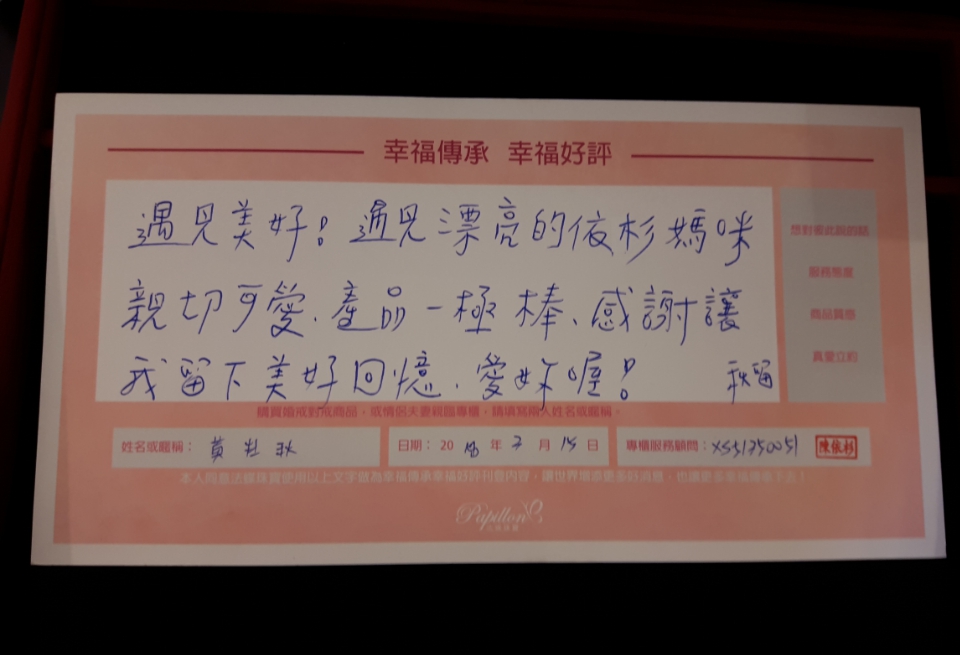 幸福傳承 幸福好評
遇見美好!遇見漂亮的依杉媽咪
親切可愛、產品一極棒、感謝讓
我留下美好回憶、愛妳喔!
秋留
想對彼此說的話
服務態度
商品質感
真愛立約
購買婚戒對戒商品，或情侶夫妻親臨專櫃，請填寫兩人姓名或暱稱。
姓名或暱稱：黃 秋
日期：20 年 月 日
專櫃服務顧問：XS51750051 陳依杉
本人同意法蝶珠寶使用以上文字做為幸福傳承幸福好評刊登內容，讓世界增添更多好消息，也讓更多幸福傳承下去！
Papillon